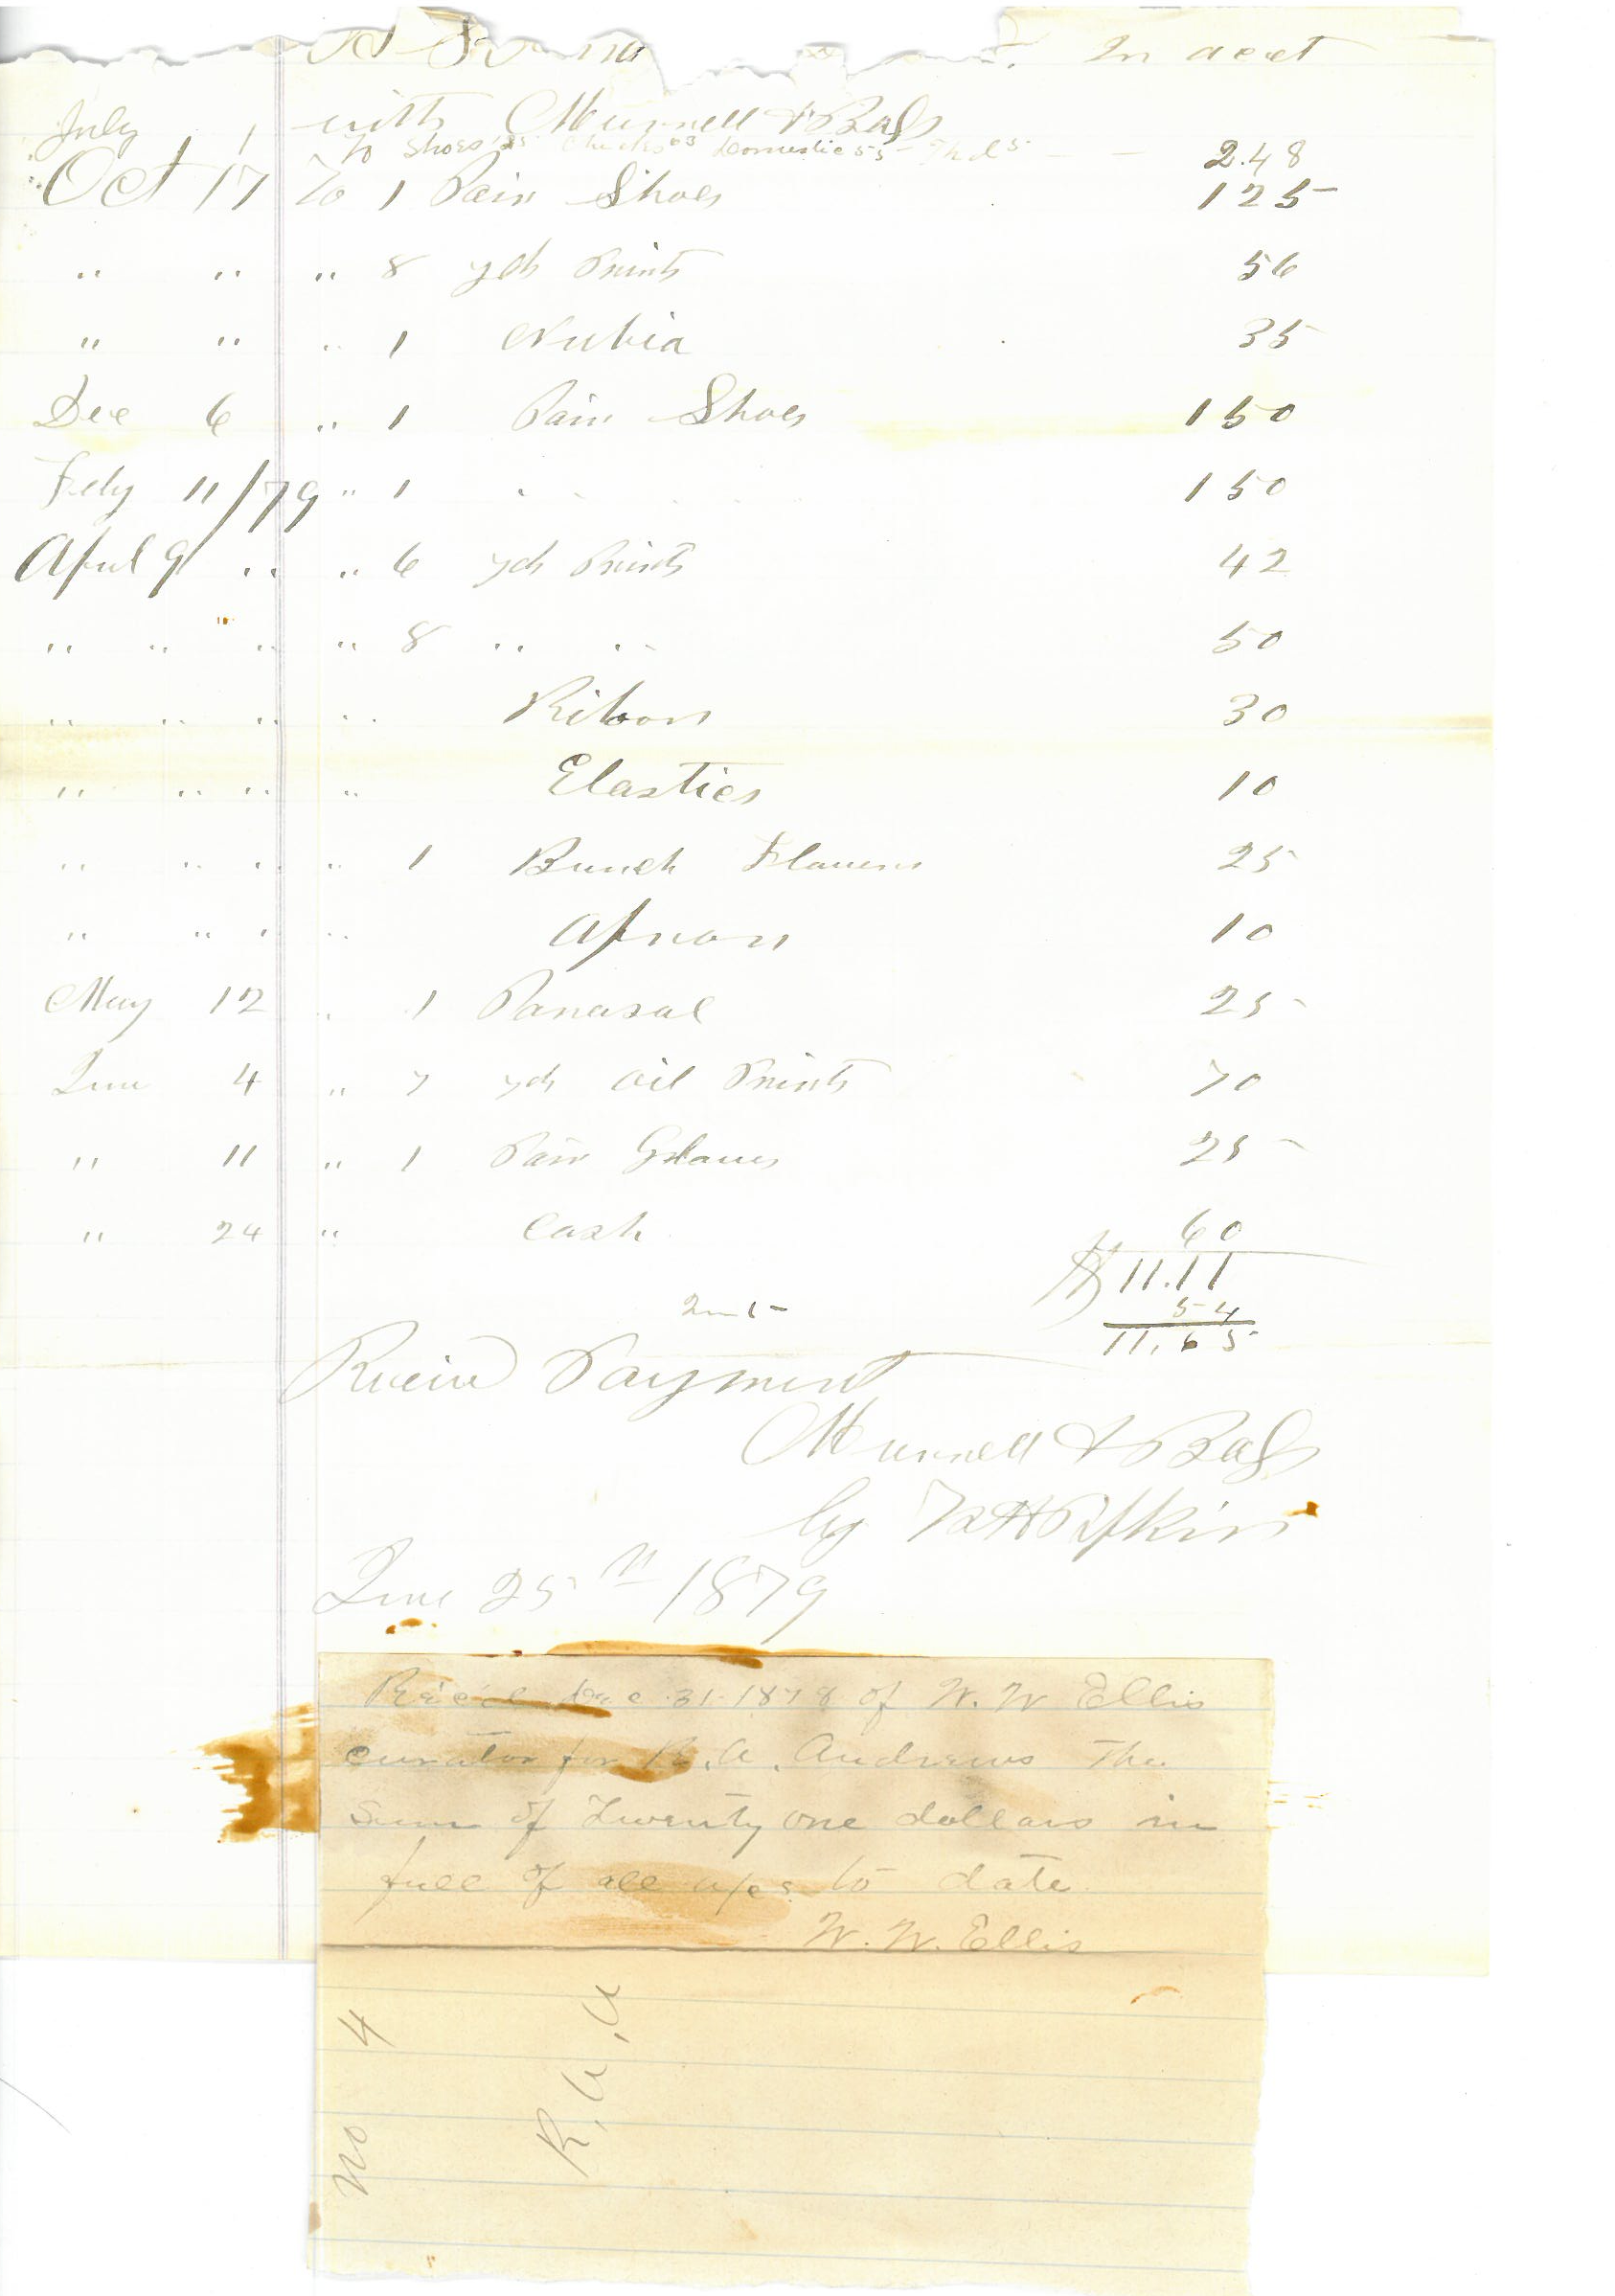 In acct
July 1 with Murrell &
To Shoes 1.25 Checks Domestic 55 Thd 5 2.48
Oct 17 To 1 Pair Shoes 125
" " " 8 yds Prints 56
" " " 1 Nubia 35
Dec 6 " 1 Pair Shoes 150
Feby 11/79 " 1 " " 150
April 9 " " 6 yds Prints 42
" " " " 8 " " 50
" " " " Riboon 30
" " " " Elastics 10
" " " " 1 Bunch Flowers 25
" " " " Apron 10
May 12 " 1 Parasol 25
June 4 " 7 yds Oil Prints 70
" 11 " 1 Pair Gloves 25
" 24 " Cash 60
$11.11
Int 54
11.65
Received Payment
Murrell &
by Pipkin
June 25th 1879
Rec'd Dec 31-1878 of W. W Ellis
curator for R. A. Andrews The
Sum of Twenty one dollars in
full of all a/cs to date
W. W. Ellis
No 4
R, A, A